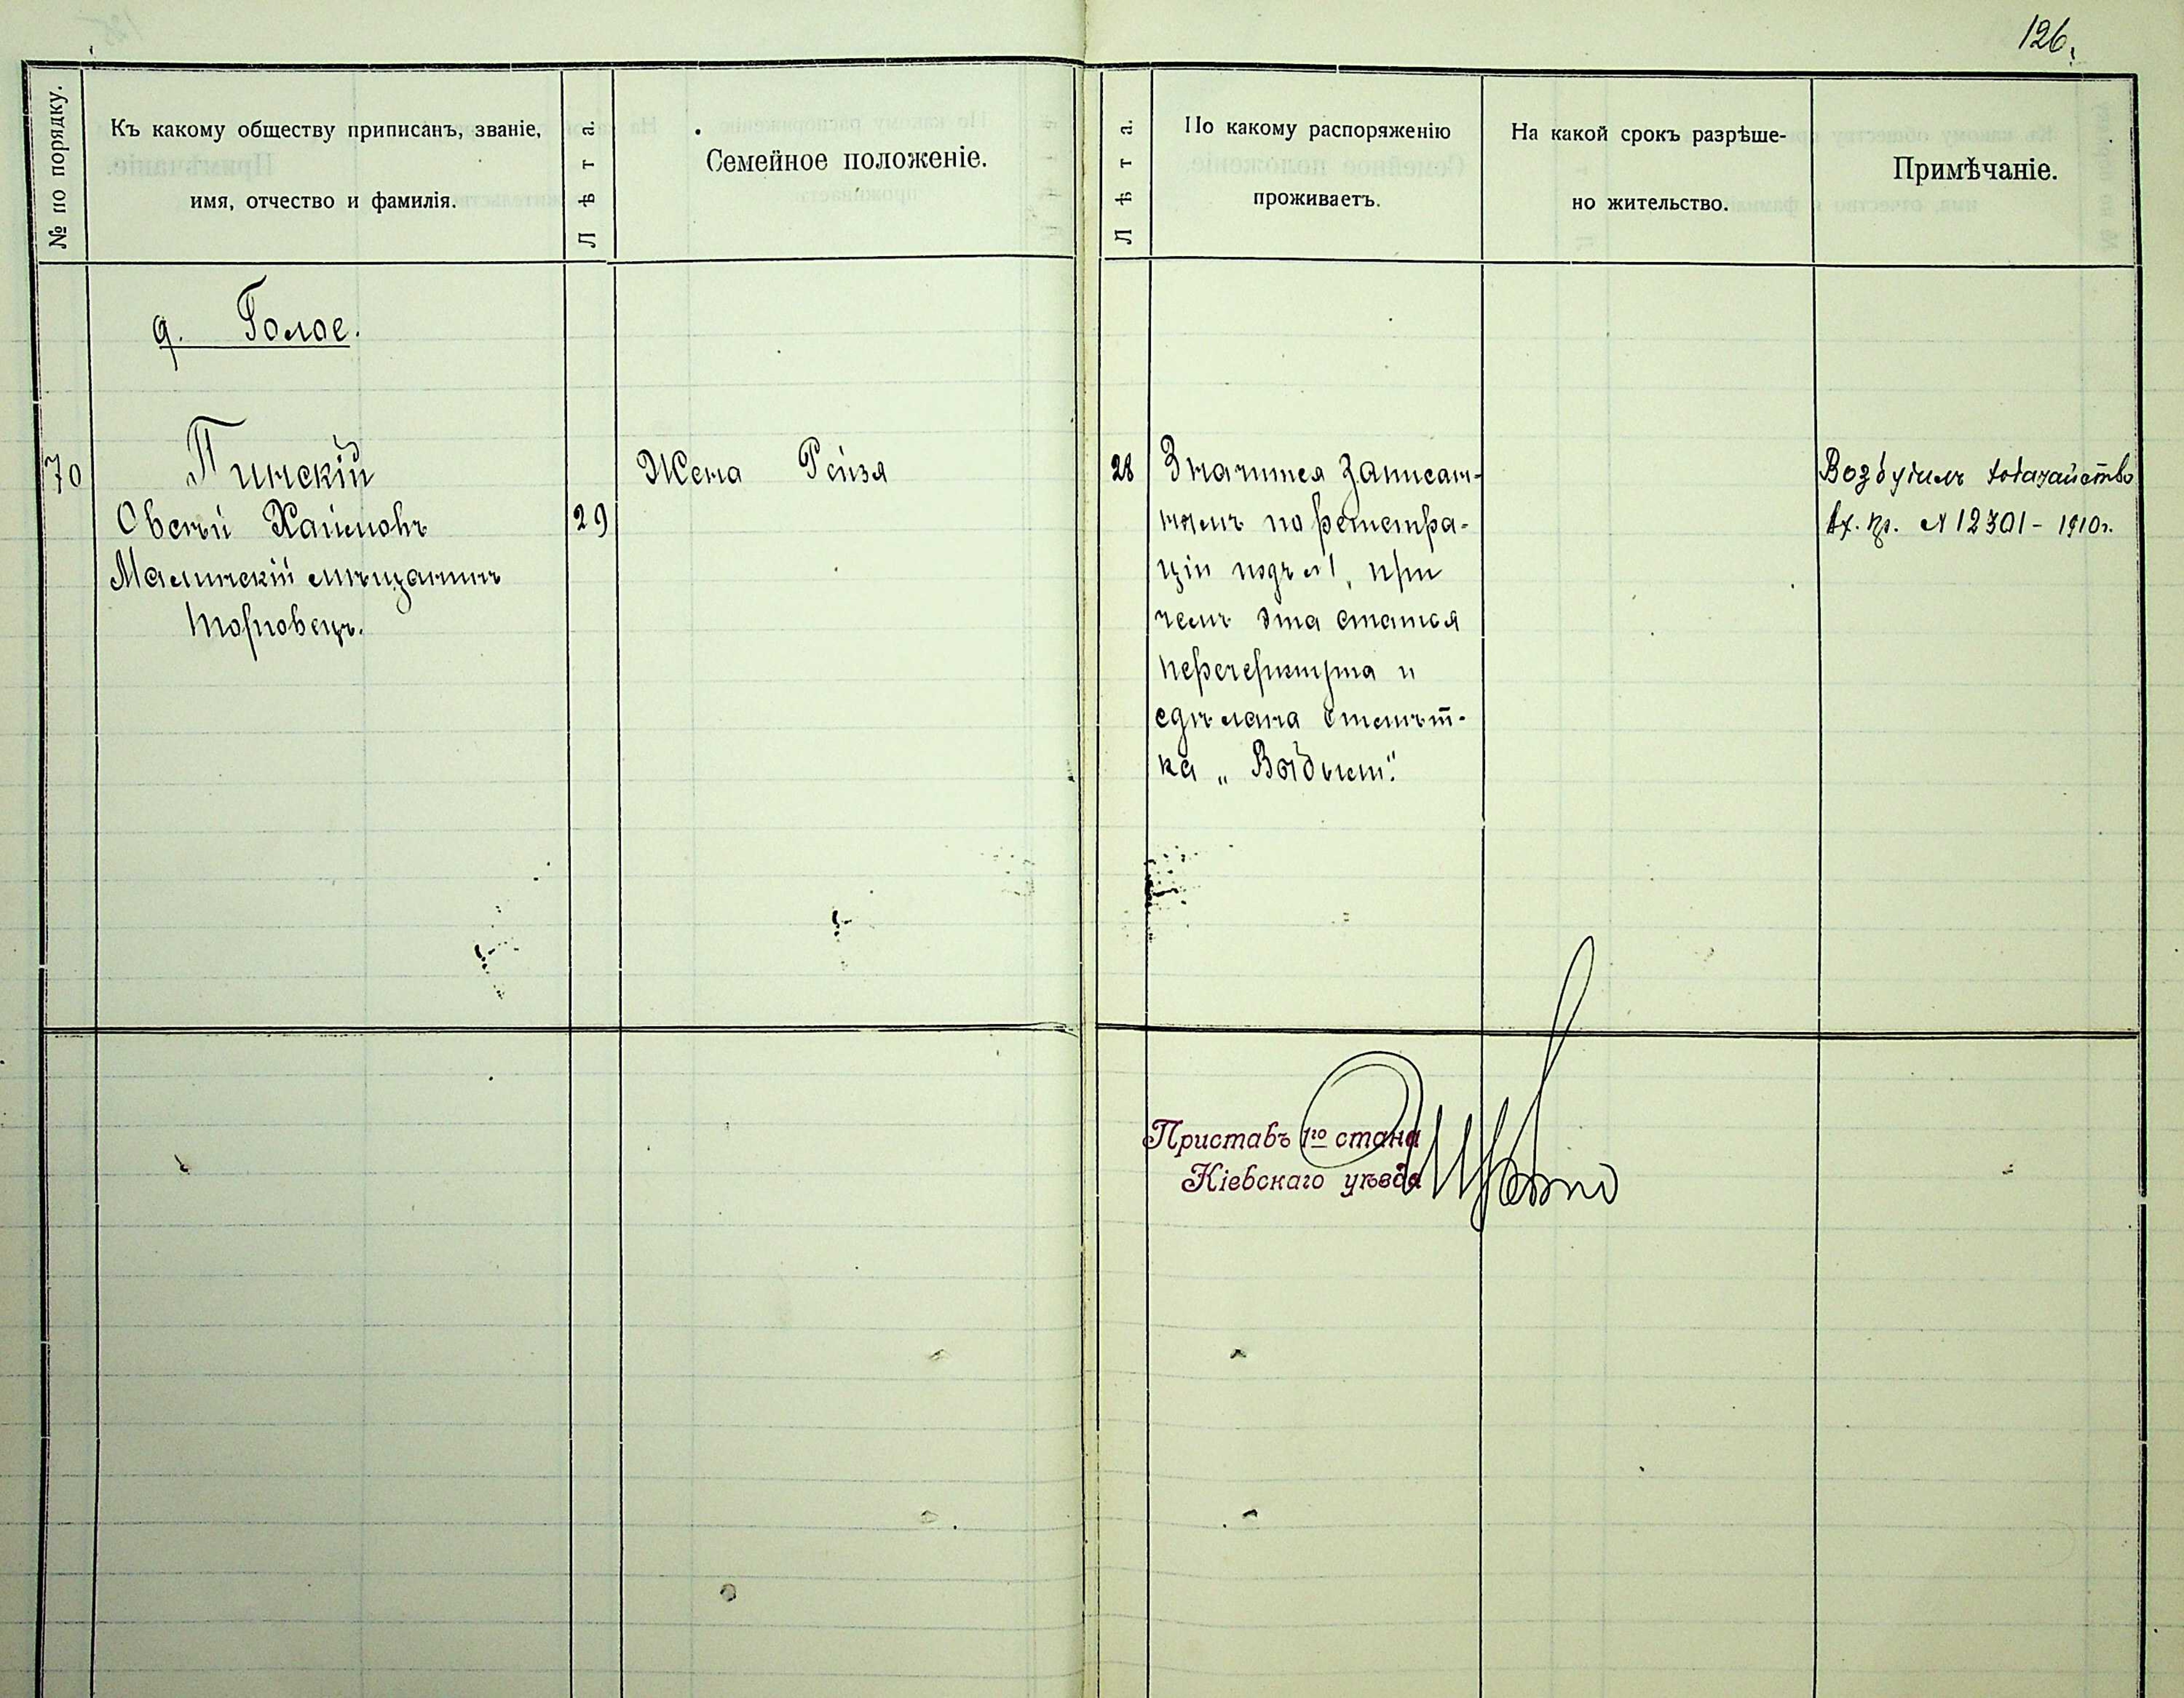 126.
№ по порядку.
Къ какому обществу приписанъ, званіе,
имя, отчество и фамилія.
Лѣта.
Семейное положеніе.
Лѣта.
По какому распоряженію
проживаетъ.
На какой срокъ разрѣше-
но жительство.
Примѣчаніе.
д. Голое.
70
Пинскій
Овсѣй Хаимовъ
29
Малинскій мѣщанинъ
торговецъ.
Жена Рейзя
28
Значится записан-
нымъ по регистра-
ціи подъ №1, при
чемъ эта статья
перечеркнута и
сдѣлана отмѣт-
ка „Выбылъ".
Возбудилъ ходатайство
Вх. № 12301 - 1910г.
Приставъ 1го стана
Кіевскаго уѣзда